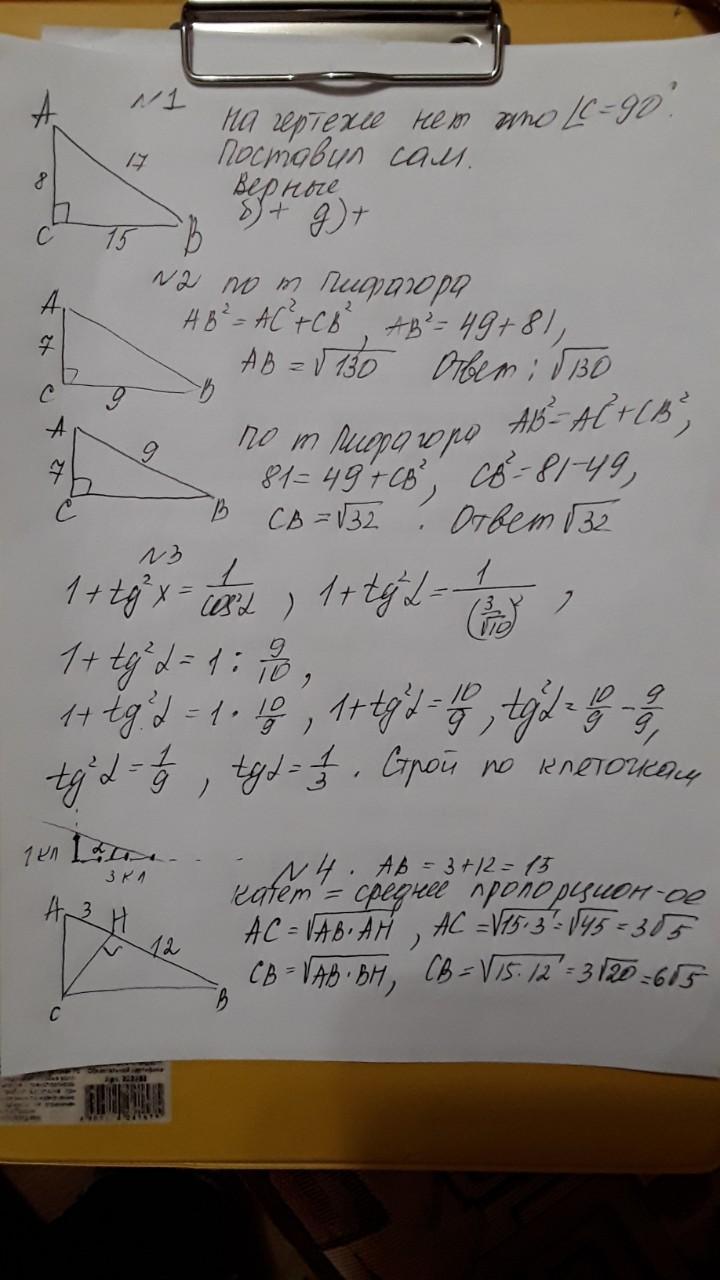 №1
на чертеже нет что ∠C=90°.
Поставил сам.
Верные
б)+ д)+
A
8
17
C
15
B
№2 по т Пифагора
AB²=AC²+CB², AB²=49+81,
AB=√130 Ответ: √130
A
7
C
9
B
по т Пифагора AB²=AC²+CB²,
81=49+CB², CB²=81-49,
CB=√32. Ответ √32
A
7
9
C
B
№3
1+tg²x=1/cos²α, 1+tg²α=1/(3/√10)²,
1+tg²α=1:9/10,
1+tg²α=1·10/9, 1+tg²α=10/9, tg²α=10/9-9/9,
tg²α=1/9, tgα=1/3. Строй по клеточкам
1кл
α
3кл
№4. AB=3+12=15
катет = среднее пропорцион-ое
AC=√AB·AH, AC=√15·3=√45=3√5
CB=√AB·BH, CB=√15·12=3√20=6√5
A
3
H
12
B
C